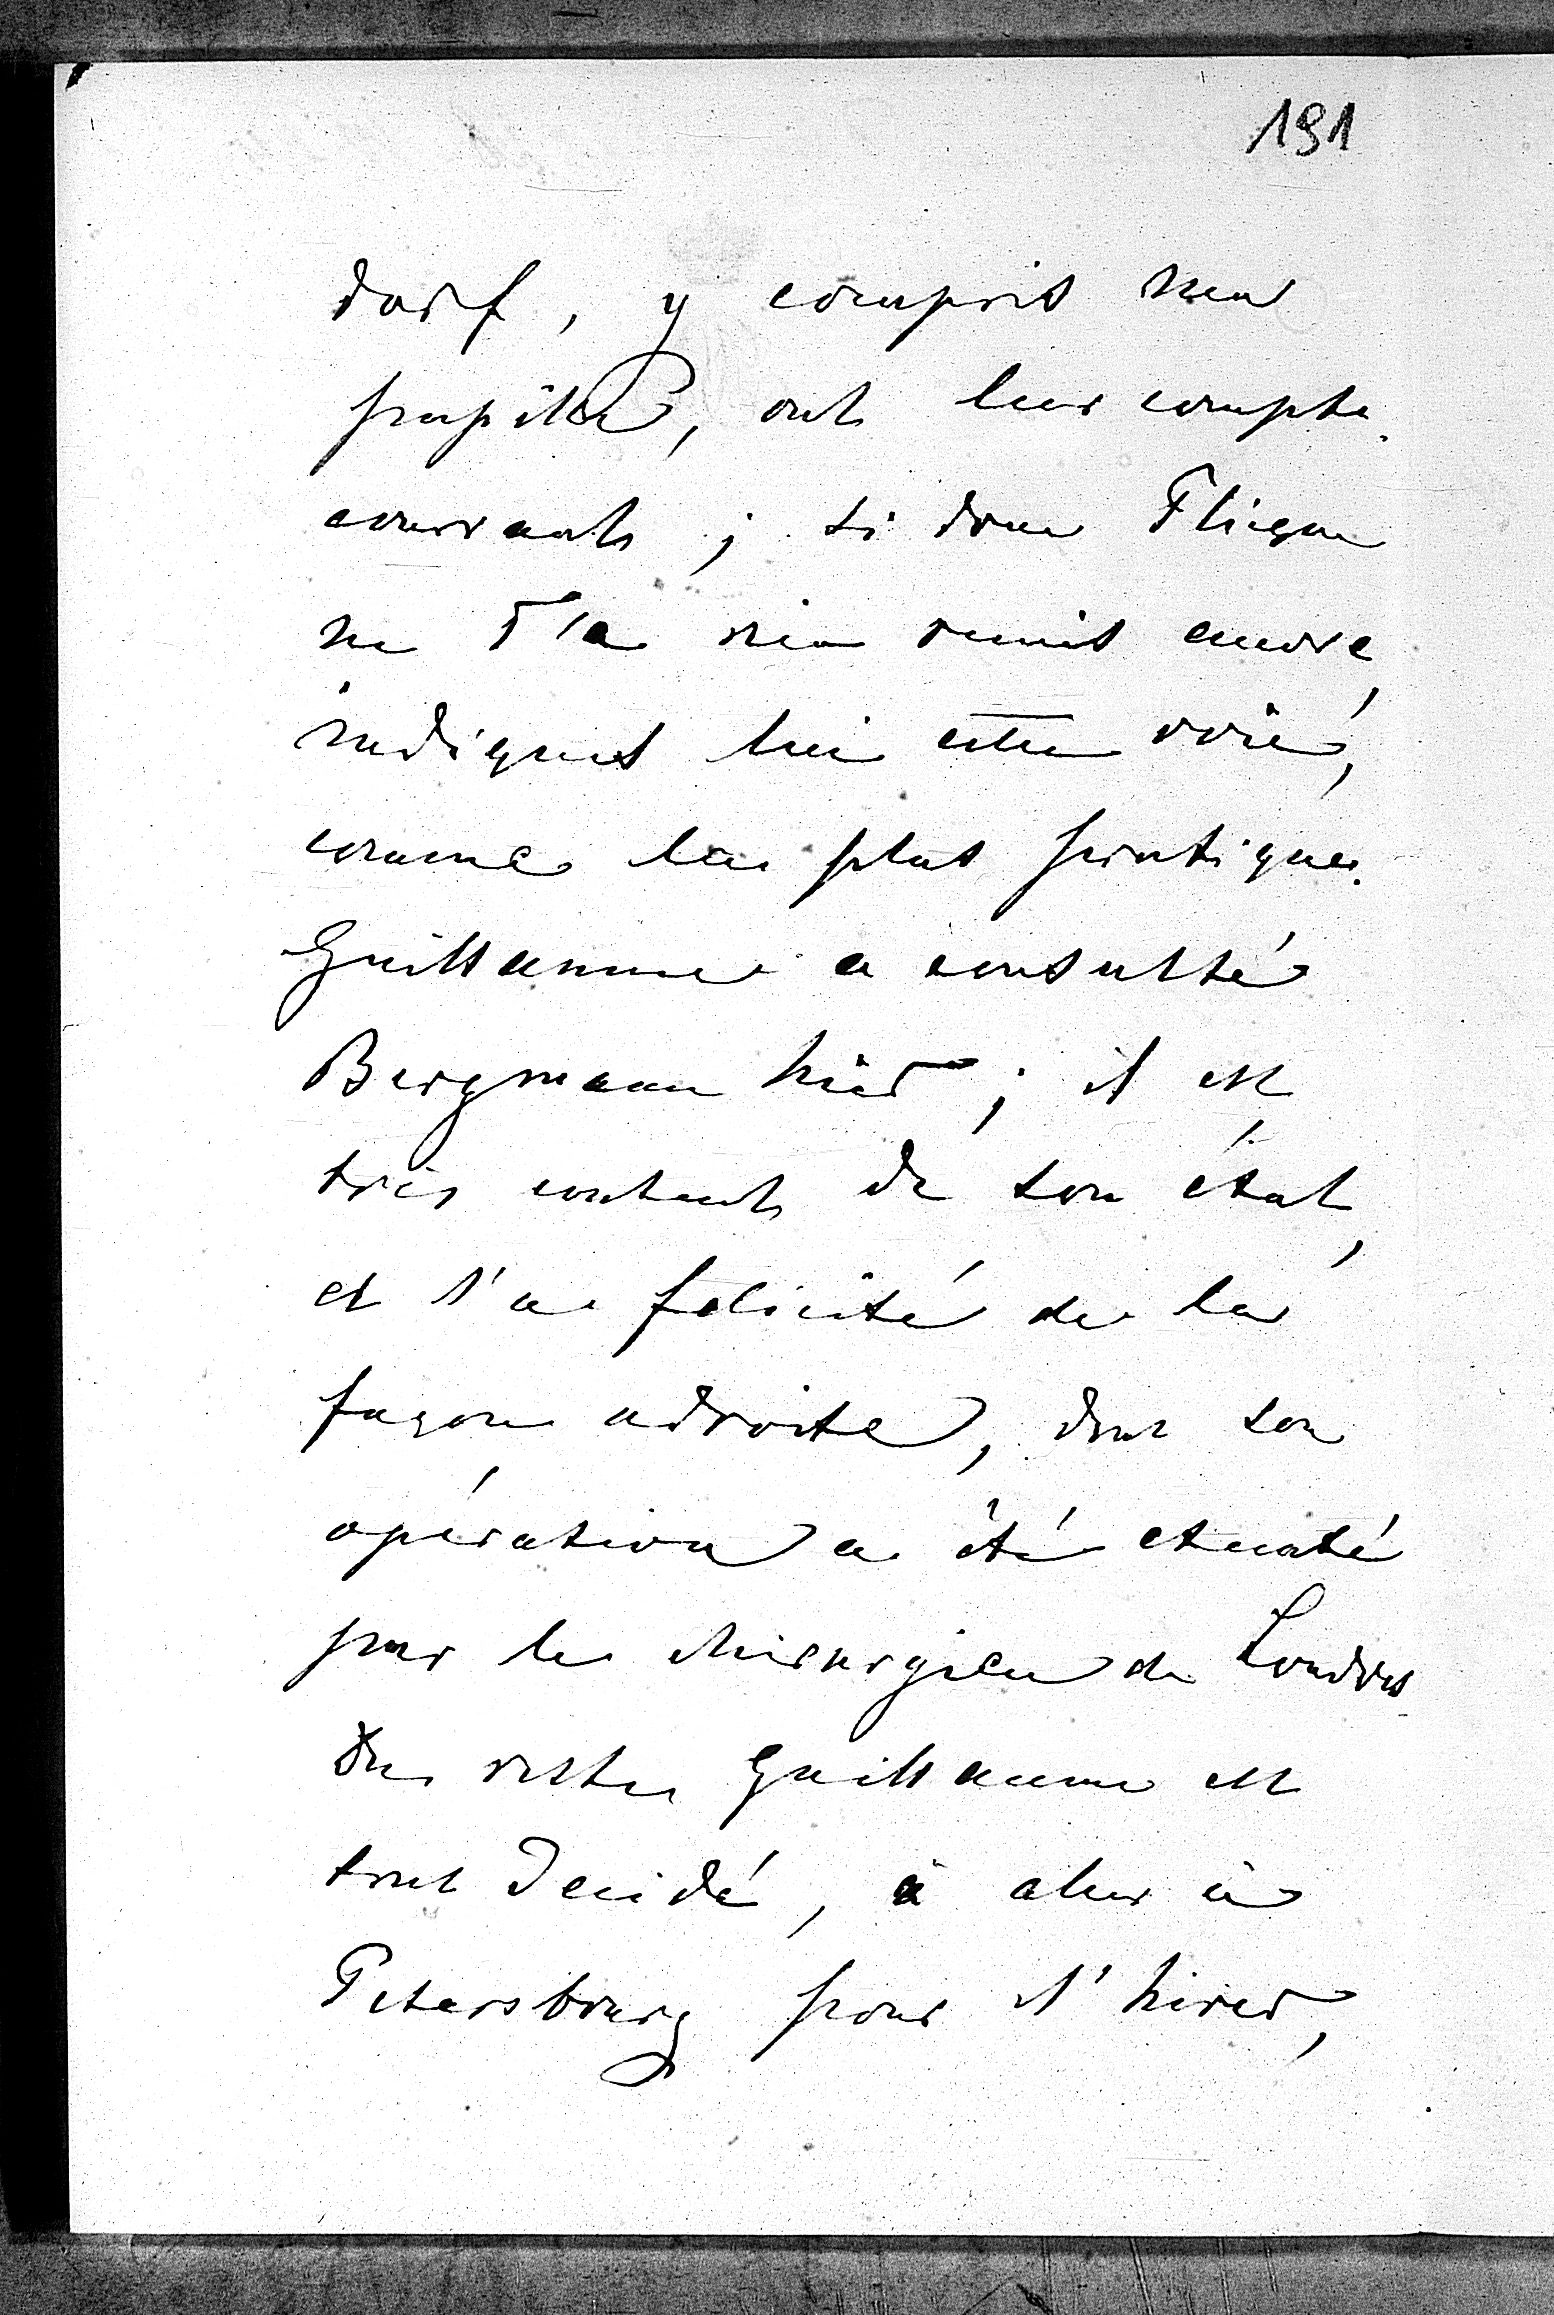 191
dorf, y compris ma
pupille, ont leur compte
courant; si donc Fliege
ne T'a rien remis encore,
indiques lui cette voie,
comme la plus pratique.
Guillaume a consulté
Bergmann hier; il est
très content de son état,
et l'a felicité de la
façon adroite, dont son
opération a été
par le chirurgien de Londres
Du reste Guillaume est
tout decidé, à aller à
Petersbourg pour l'hiver,